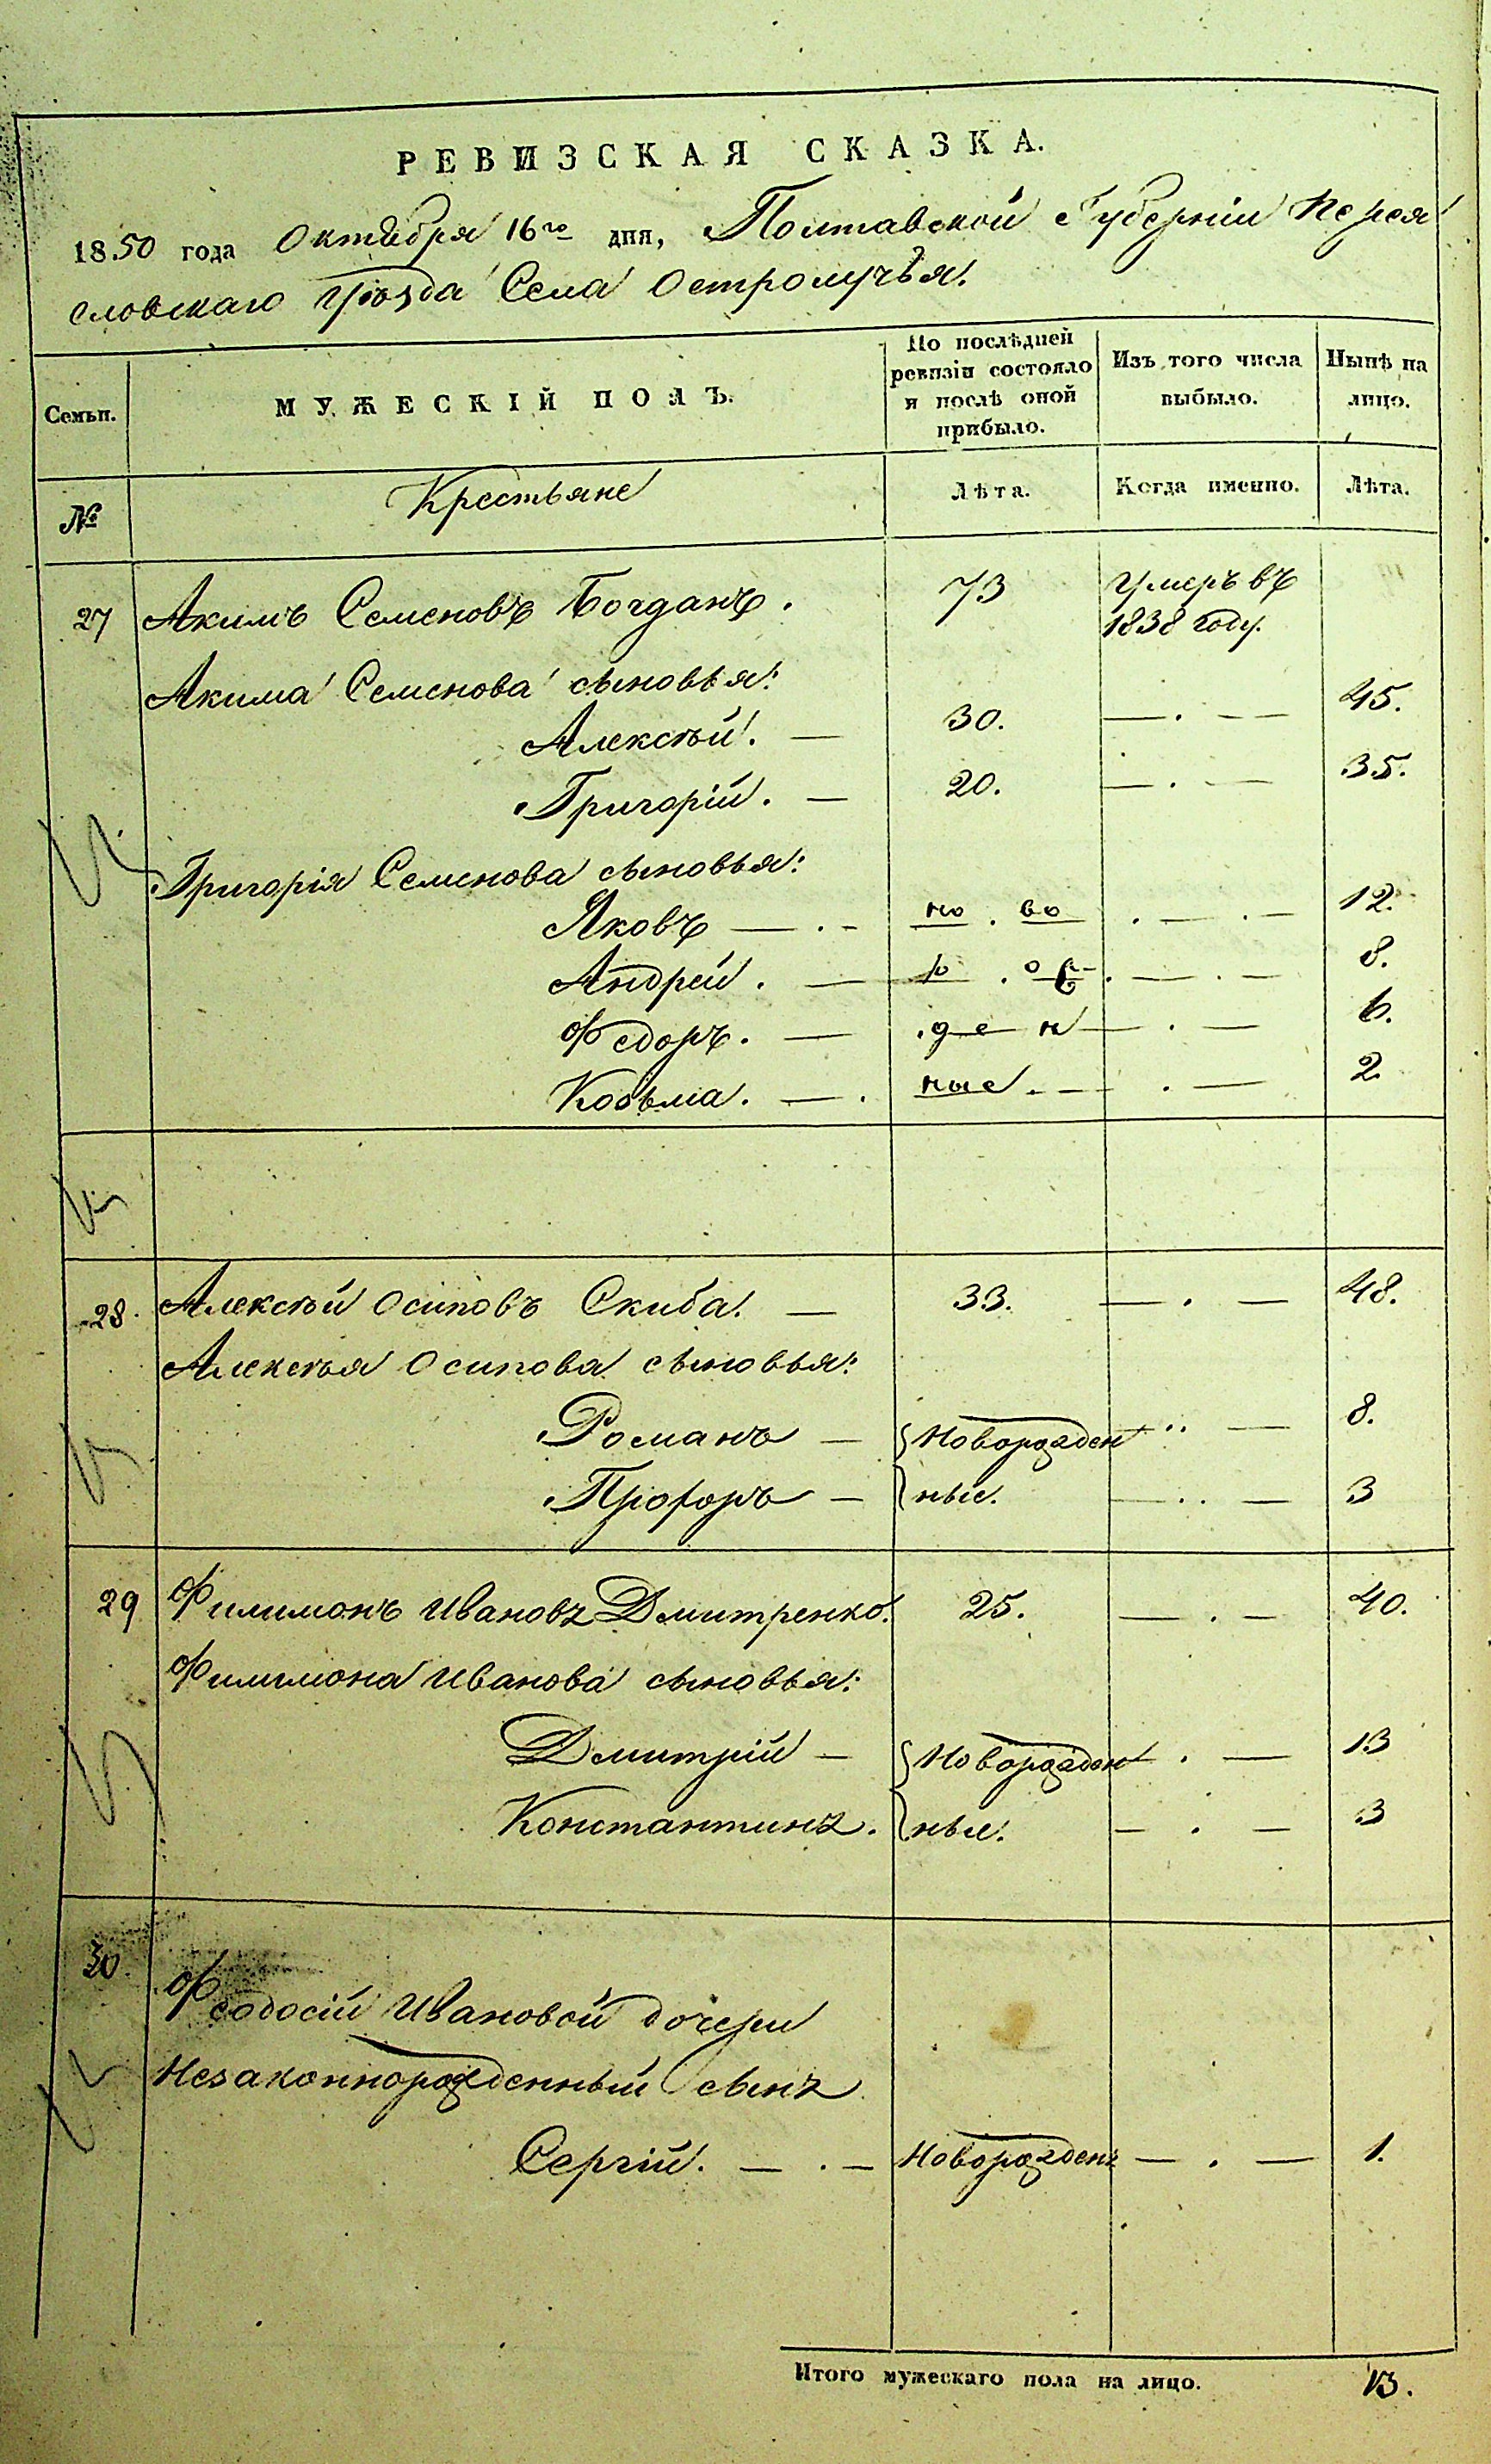 РЕВИЗСКАЯ СКАЗКА.
1850 года Октября 16го дня, Полтавской Губерніи Перея
словскаго Уѣзда Села Остролучья.
Семьи.
МУЖЕСКІЙ ПОЛЪ.
По послѣдней ревизіи состояло и послѣ оной прибыло.
Изъ того числа выбыло.
Нынѣ на лицо.
№
Крестьяне
Лѣта.
Когда именно.
Лѣта.
27 Акимъ Семеновъ Богданъ. 73 Умеръ въ
1838 году.
Акима Семенова сыновья:
Алексѣй. — 30. — . — — 45.
Григорій. — 20. — . — 35.
Григорія Семенова сыновья:
Яковъ — . - но . во . — . — 12.
Андрей. — р . ож . — . — 8.
Федоръ. — . д е н — . — 6.
Козьма. — . ные. — . — 2
28. Алексѣй Осиповъ Скиба. — 33. — . — 48.
Алексѣя Осипова сыновья:
Романъ — Новорожден .. — 8.
Прохоръ — ные. — .. — 3
29 Филимонъ Ивановъ Дмитренко. 25. — . — 40.
Филимона Иванова сыновья:
Дмитрій — Новорожден . — 13
Константинъ. ные. — . — 3
30.
Феодосіи Ивановой дочери
Незаконнорожденный сынъ
Сергій. — . — Новорожденъ — . — 1.
Итого мужескаго пола на лицо. 13.